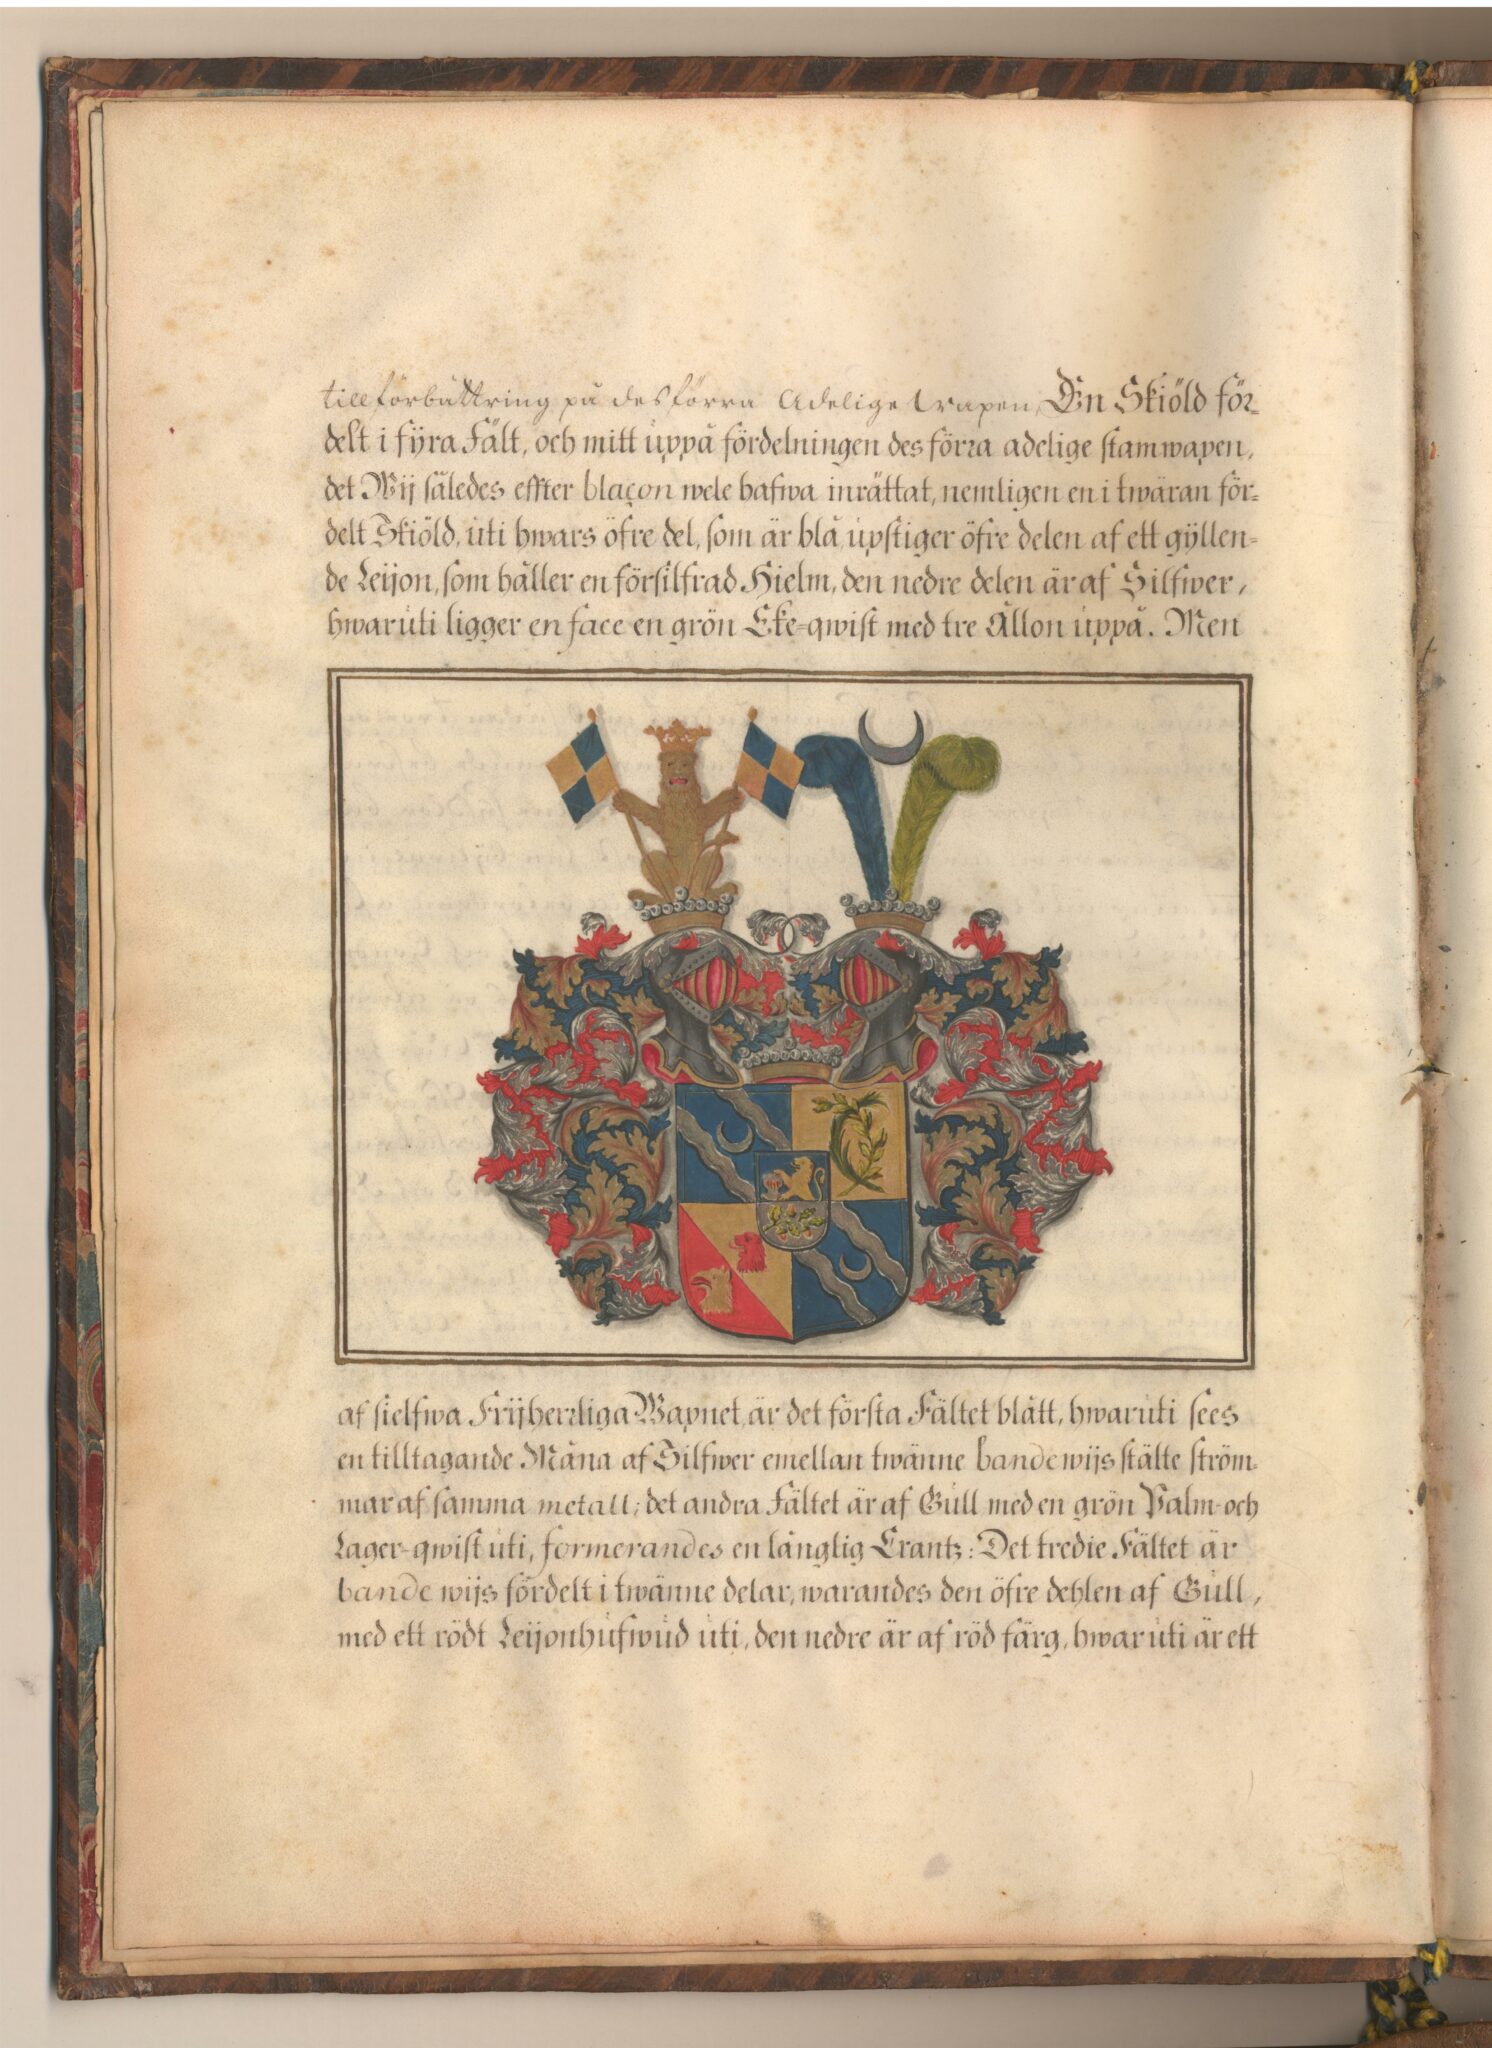 till förbättring på des förra Adelige wapen, En Skiöld för-
delt i fÿra Fält, och mitt uppå fördelningen des förra adelige stamwapen,
det Wij således effter blaçon wele hafwa inrättat, nemligen en i twäran för-
delt Skiöld, uti hwars öfre del, som är blå upstiger öfre delen af ett gÿllen-
de Leijon, som håller en försilfrad Hielm, den nedre delen är af Silfwer,
hwaruti ligger en face en grön Eke-qwist med tre Ållon uppå. Men
af sielfwa Frijherrliga Wapnet, är det första Fältet blått, hwaruti sees
en tilltagande Måna af Silfwer emellan twänne bandewijs stälte ström-
mar af samma metall; det andra Fältet är af Gull med en grön Palm- och
Lager-qwist uti, formerandes en långlig Crantz: Det tredie Fältet är
bande wijs fördelt i twänne delar, warandes den öfre dehlen af Gull,
med ett rödt Leijonhufwud uti, den nedre är af röd färg, hwaruti är ett